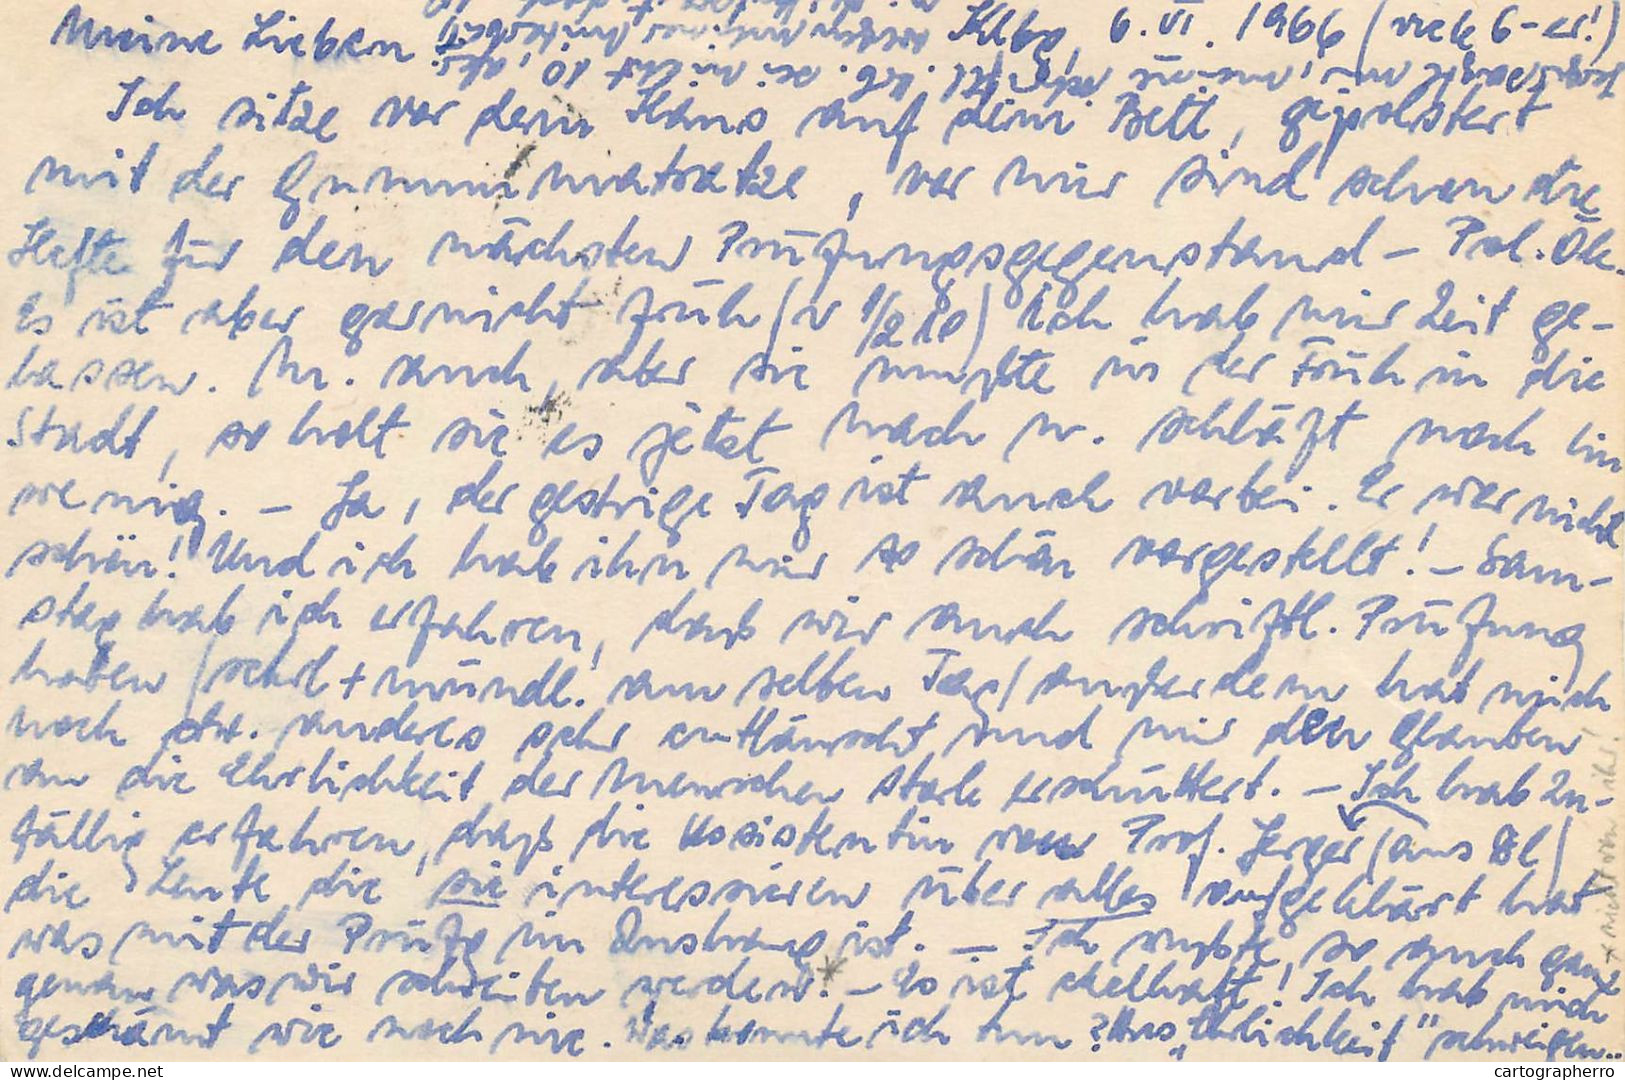 Meine Lieben Klbg, 6.VI.1966 (viele 6-er!)
Ich sitze vor dem Haus auf dem Bett, gepolstert
mit der Gummimatratze, vor mir sind schon die
Hefte für den nächsten Prüfungsgegenstand – Pol. Ök.
Es ist aber garnicht früh (v 1/2 10) Ich hab mir Zeit ge-
lassen. M. auch, aber sie mußte in der Früh in die
Stadt, so holt sie es jetzt nach u. schläft noch ein
wenig. – Ja, der gestrige Tag ist auch vorbei. Er war nicht
schön! Und ich hab ihn mir so schön vorgestellt! – Sam-
stag hab ich erfahren, daß wir auch schriftl. Prüfung
haben (schrl + mündl. am selben Tag) außerdem hat mich
noch etw. anderes sehr enttäuscht und mir den Glauben
an die Ehrlichkeit der Menschen stark erschüttert. – Ich hab zu-
fällig erfahren, daß die Assistentin von Prof. Jerger (aus )
die Leute die sie interessieren über alles aufgeklärt hat
was mit der Prüfg im Zushang ist. – Ich wußte so auch ganz
genau was wir schreiben werden.* – Es ist ekelhaft! Ich hab mich
geschämt wie noch nie. Was konnte ich tun? Aus "Ehrlichkeit" schweigen..
* nicht von ihr!
cartographerro